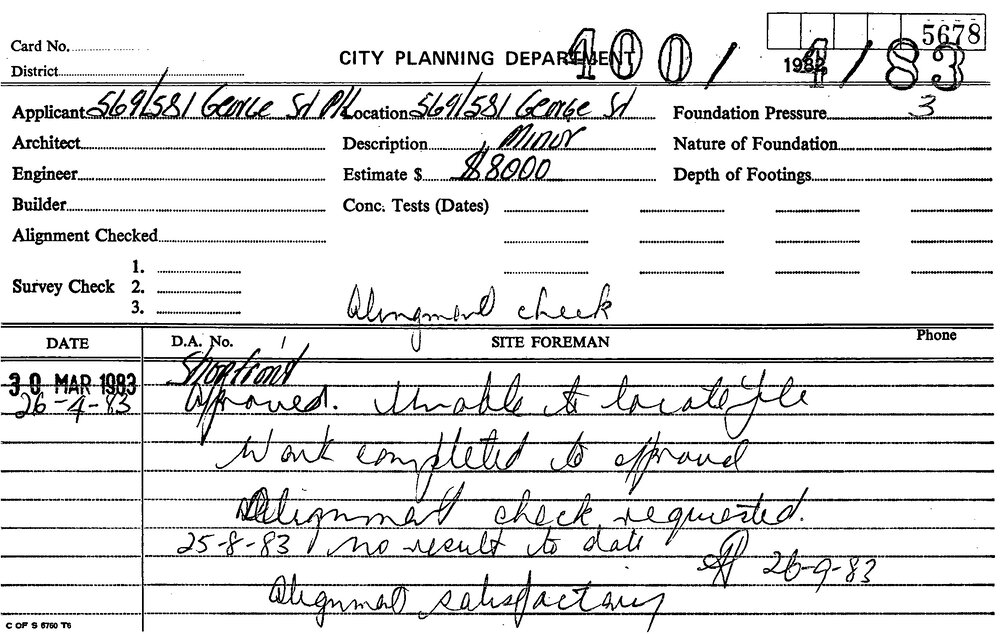 5678
Card No.
CITY PLANNING DEPARTMENT
400/4/83
1982
District
Applicant 569/581 George St P/L Location 569/581 George St Foundation Pressure 3
Architect Description Minor Nature of Foundation
Engineer Estimate $ $8000 Depth of Footings
Builder Conc. Tests (Dates)
Alignment Checked
Survey Check 1.
2.
3.
Alingment check
DATE D.A. No. SITE FOREMAN Phone
30 MAR 1983 Shopfront
26-4-83 Approved. Unable to locate file
Work completed to approval
Alignment check requested.
25-8-83 no result to date
26-9-83
Alignment satisfactory
C OF S 6760 T6